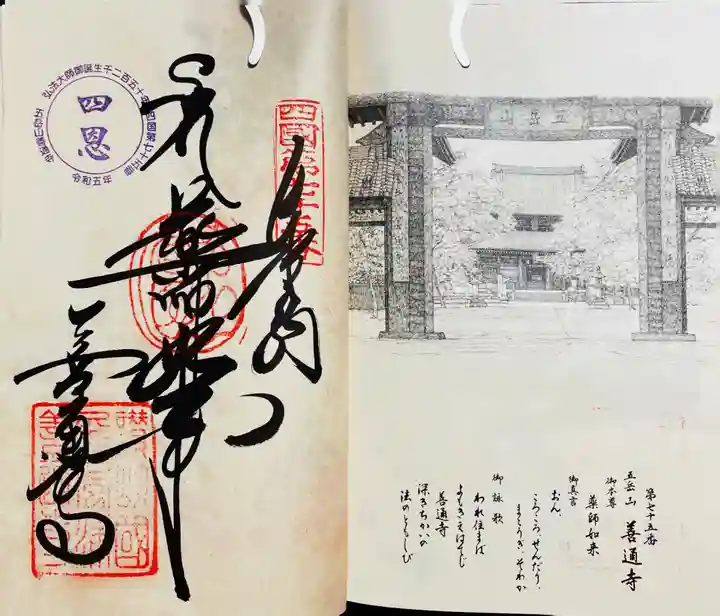 第七十五番
五岳山 善通寺
御本尊
薬師如来
御真言
おん
ころころ せんだり
まとうぎ そわか
御詠歌
われ住まば
よもきえはてじ
善通寺
深きちかいの
法のともしび
奉納
薬師如来
善通寺
四國第七十五番
弘法大師御誕生千二百五十年
四国第七十五番
四恩
令和五年